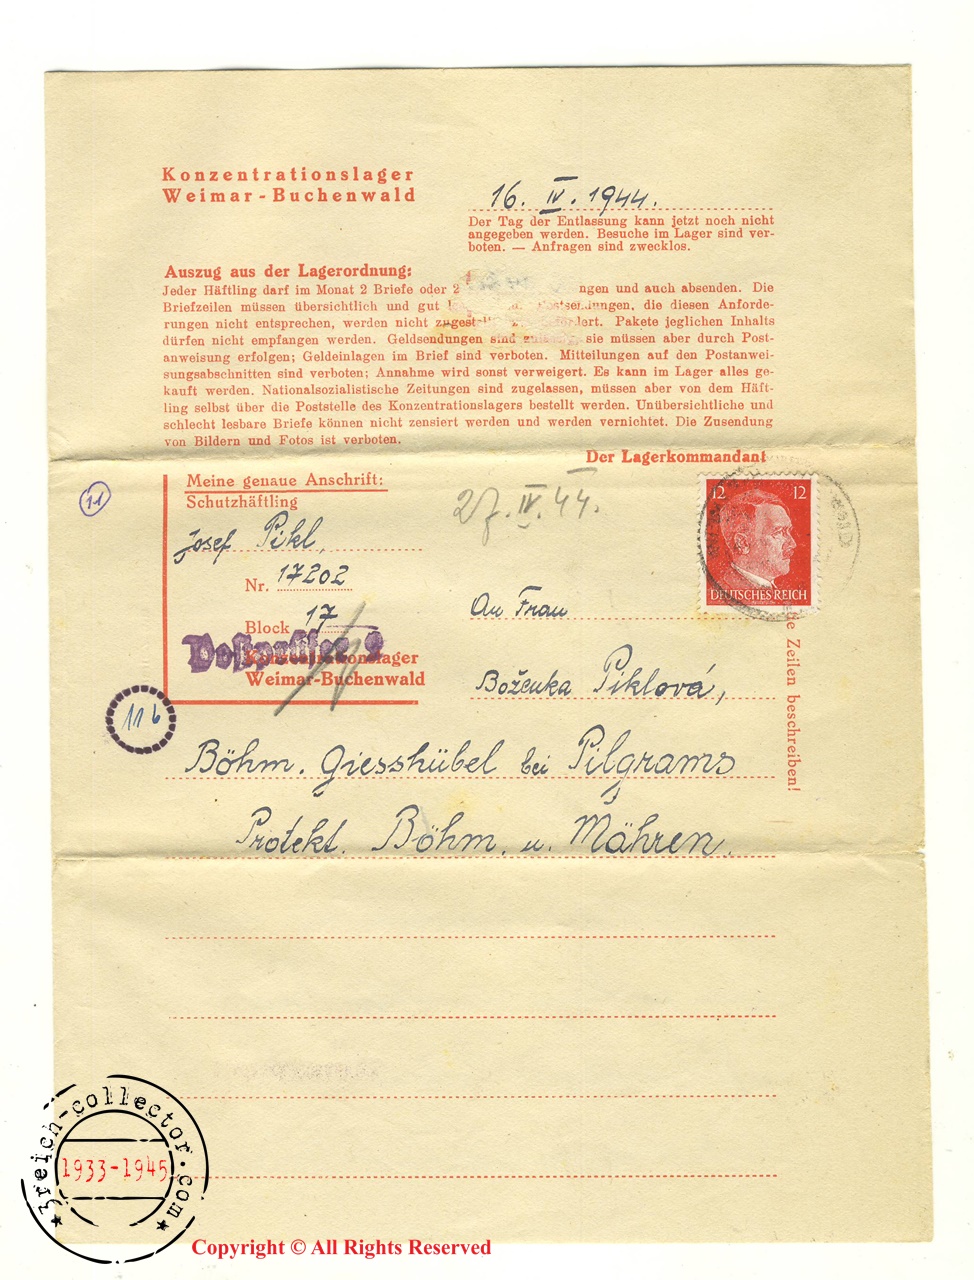 Konzentrationslager
Weimar-Buchenwald
16. IV. 1944.
Der Tag der Entlassung kann jetzt noch nicht
angegeben werden. Besuche im Lager sind ver-
boten. — Anfragen sind zwecklos.
Auszug aus der Lagerordnung:
Jeder Häftling darf im Monat 2 Briefe oder 2 ngen und auch absenden. Die
Briefzeilen müssen übersichtlich und gut Postsendungen, die diesen Anforde-
rungen nicht entsprechen, werden nicht zugestellt Pakete jeglichen Inhalts
dürfen nicht empfangen werden. Geldsendungen sind zulässig, sie müssen aber durch Post-
anweisung erfolgen; Geldeinlagen im Brief sind verboten. Mitteilungen auf den Postanwei-
sungsabschnitten sind verboten; Annahme wird sonst verweigert. Es kann im Lager alles ge-
kauft werden. Nationalsozialistische Zeitungen sind zugelassen, müssen aber von dem Häft-
ling selbst über die Poststelle des Konzentrationslagers bestellt werden. Unübersichtliche und
schlecht lesbare Briefe können nicht zensiert werden und werden vernichtet. Die Zusendung
von Bildern und Fotos ist verboten.
Der Lagerkommandant
Meine genaue Anschrift:
Schutzhäftling
27. IV. 44.
12 12
DEUTSCHES REICH
Josef Pikl,
Nr. 17202
Block 17
Konzentrationslager
Weimar-Buchenwald
An Frau
Boženka Piklová,
Zeilen beschreiben!
11b
Böhm. Giesshübel bei Pilgrams
Protekt. Böhm. u. Mähren.
3reich-collector.com
1933-1945
Copyright © All Rights Reserved